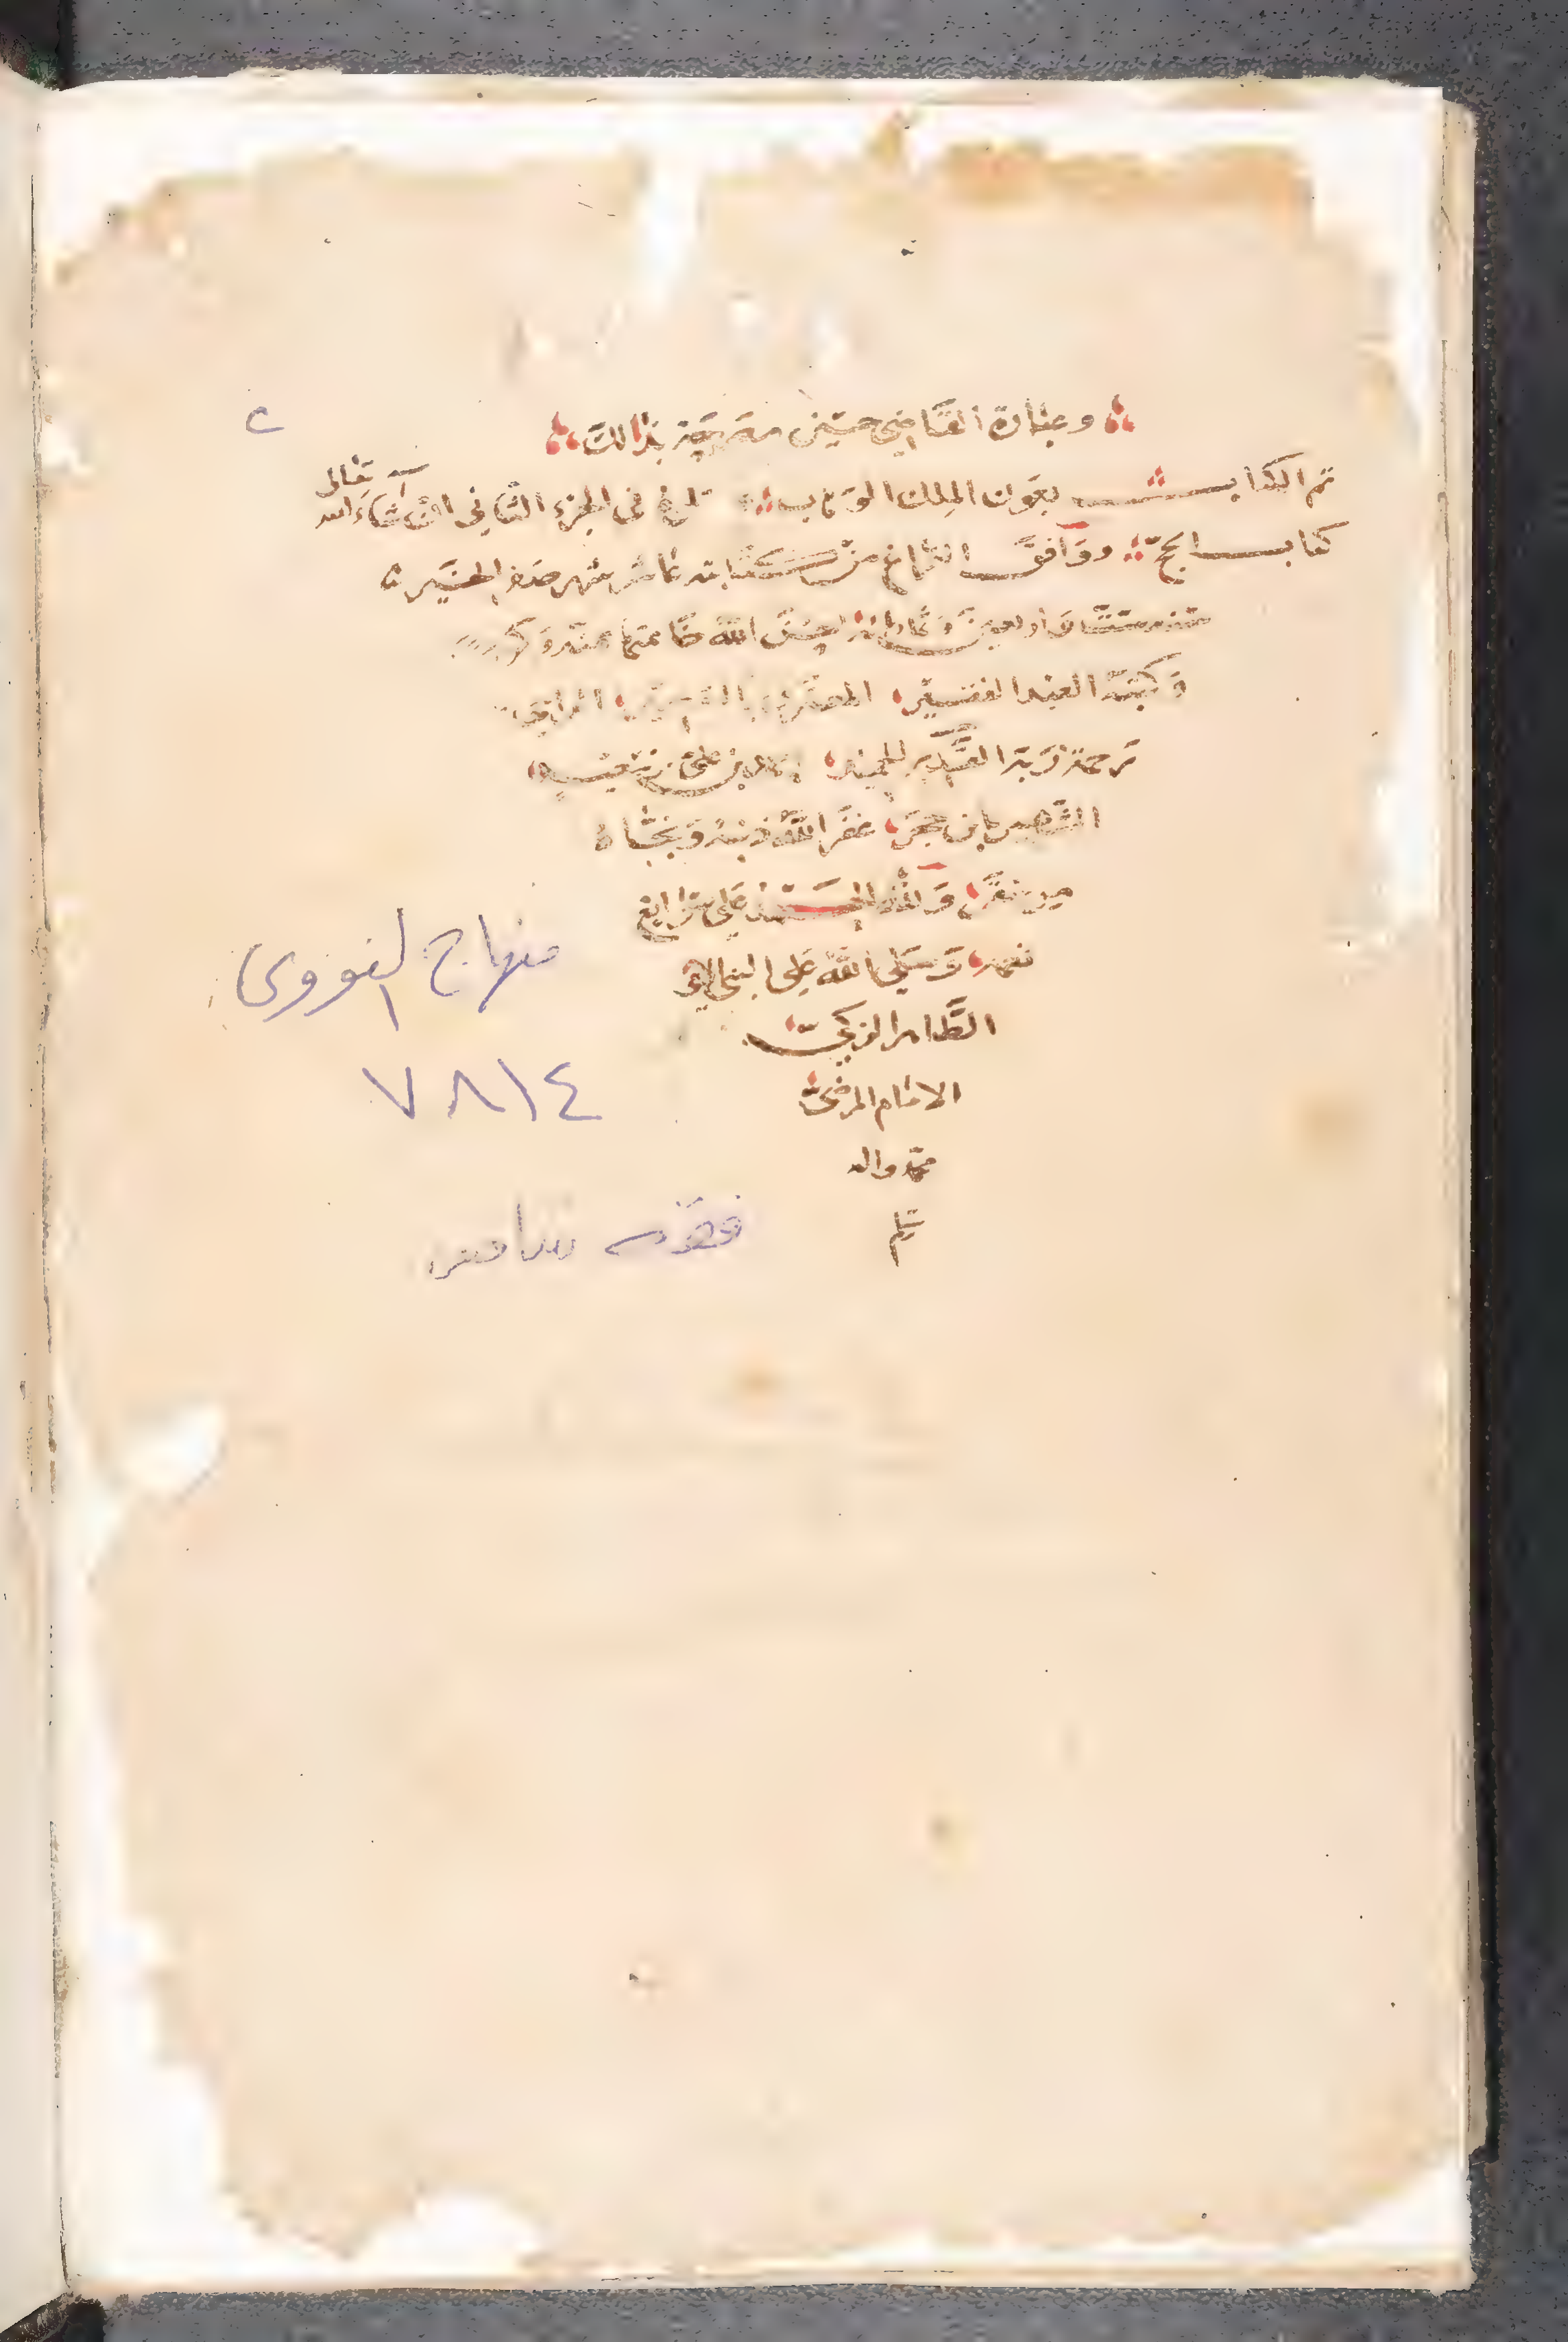 وعبارة القاضي حسين مصرحة بذالك
تم الكتاب بعون الملك الوهاب يتلوه في الجزء الثاني ان شاء الله تعالى
كتاب الحج ووافق الفراغ من كتابته عاشر شهر صفر الخير
سنة ستة واربعين وثمانمائة احسن الله ختامها بمنه وكرمه
وكتبه العبد الفقير المعترف بالتقصير الراجي
رحمة ربه القدير للمجيد بن علي بن
الشهير بابن حجر غفر الله ذنبه ونجاه
من ولله الحمد على سوابغ
نعمه وصلى الله على النبي الامي
الطاهر الزكي
الامام المرضي
محمد واله
وسلم
٢
منهاج النووى
٧٨١٤
فقه شافعى